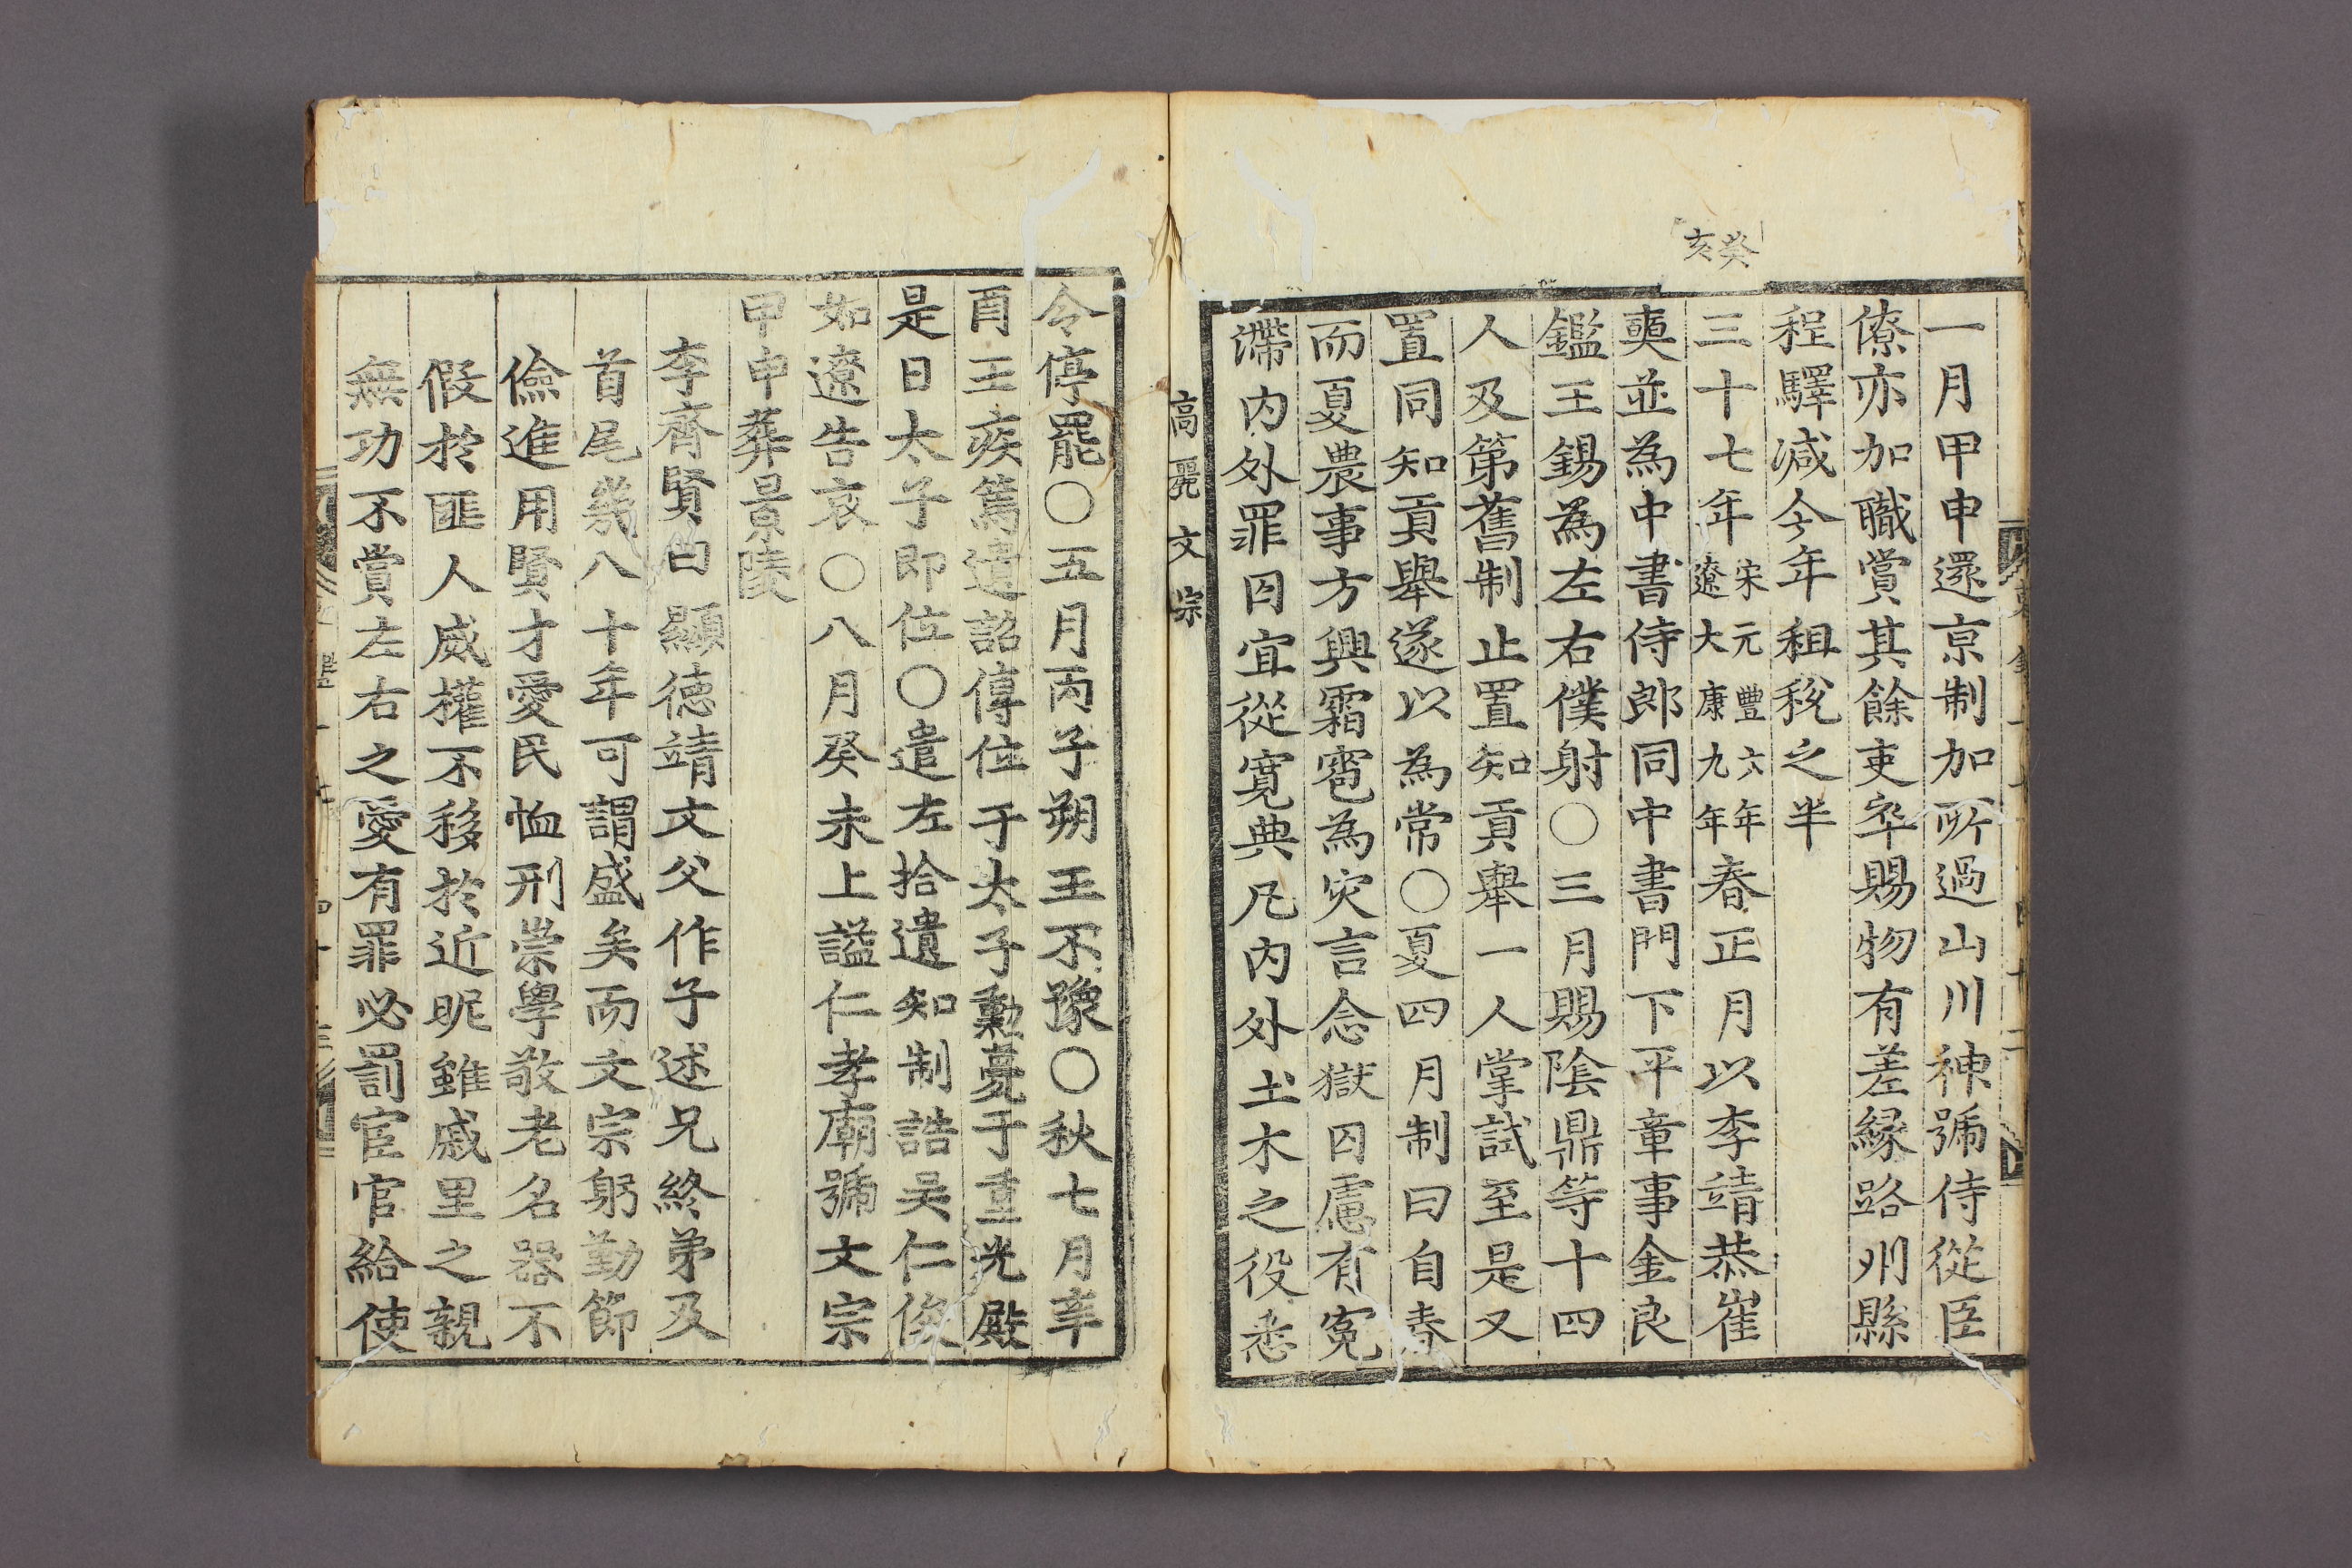 癸亥
一月甲申還京制加所過山川神號侍從臣
僚亦加職賞其餘吏卒賜物有差縁路州縣
程驛减今年租稅之半
三十七年宋元豐六年遼大康九年春正月以李靖恭崔
奭並為中書侍郎同中書門下平章事金良
鑑王錫為左右僕射○三月賜陰鼎等十四
人及第舊制止置知貢舉一人掌試至是又
置同知貢舉遂以為常○夏四月制曰自春
而夏農事方興霜雹為灾言念獄囚慮有寃
滯内外罪囚宜從寛典凡内外土木之役悉
高麗文宗
令停罷○五月丙子朔王不豫○秋七月辛
酉王疾篤遺詔傳位于太子勳薨于重光殿
是日太子即位○遣左拾遺知制誥吳仁俊
如遼告哀○八月癸未上謚仁孝廟號文宗
甲申葬景陵
李齊賢曰顯德靖文父作子述兄終弟及
首尾幾八十年可謂盛矣而文宗躬勤節
儉進用賢才愛民恤刑崇學敬老名器不
假於匪人威權不移於近昵雖戚里之親
無功不賞左右之愛有罪必罰宦官給使